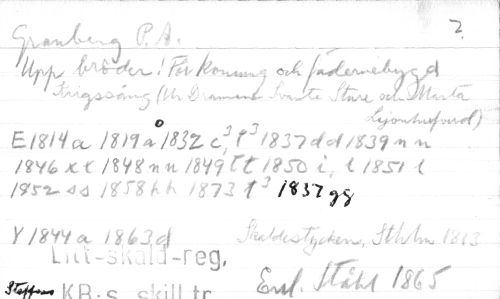 Granberg P. A. 2
Upp bröder! För konung och fädernebygd
Krigssång (Ur Dramen Svante Sture och Märta
Lejonhufvud)
E 1814 a 1819 a 1832 c³, f³ 1837 dd 1839 nn
1846 xx 1848 nn 1849 tt 1850 i, l 1851 l
1852 ss 1858 hh 1873 t³ 1837 gg
Y 1844 a 1863 d Skaldestycken, Sthlm 1813
Litt-skåld-reg.
Steffens KB:s skill tr Enl. Ståhl 1865